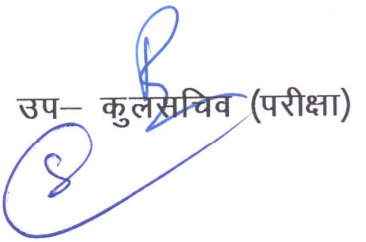 उप– कुलसचिव (परीक्षा)